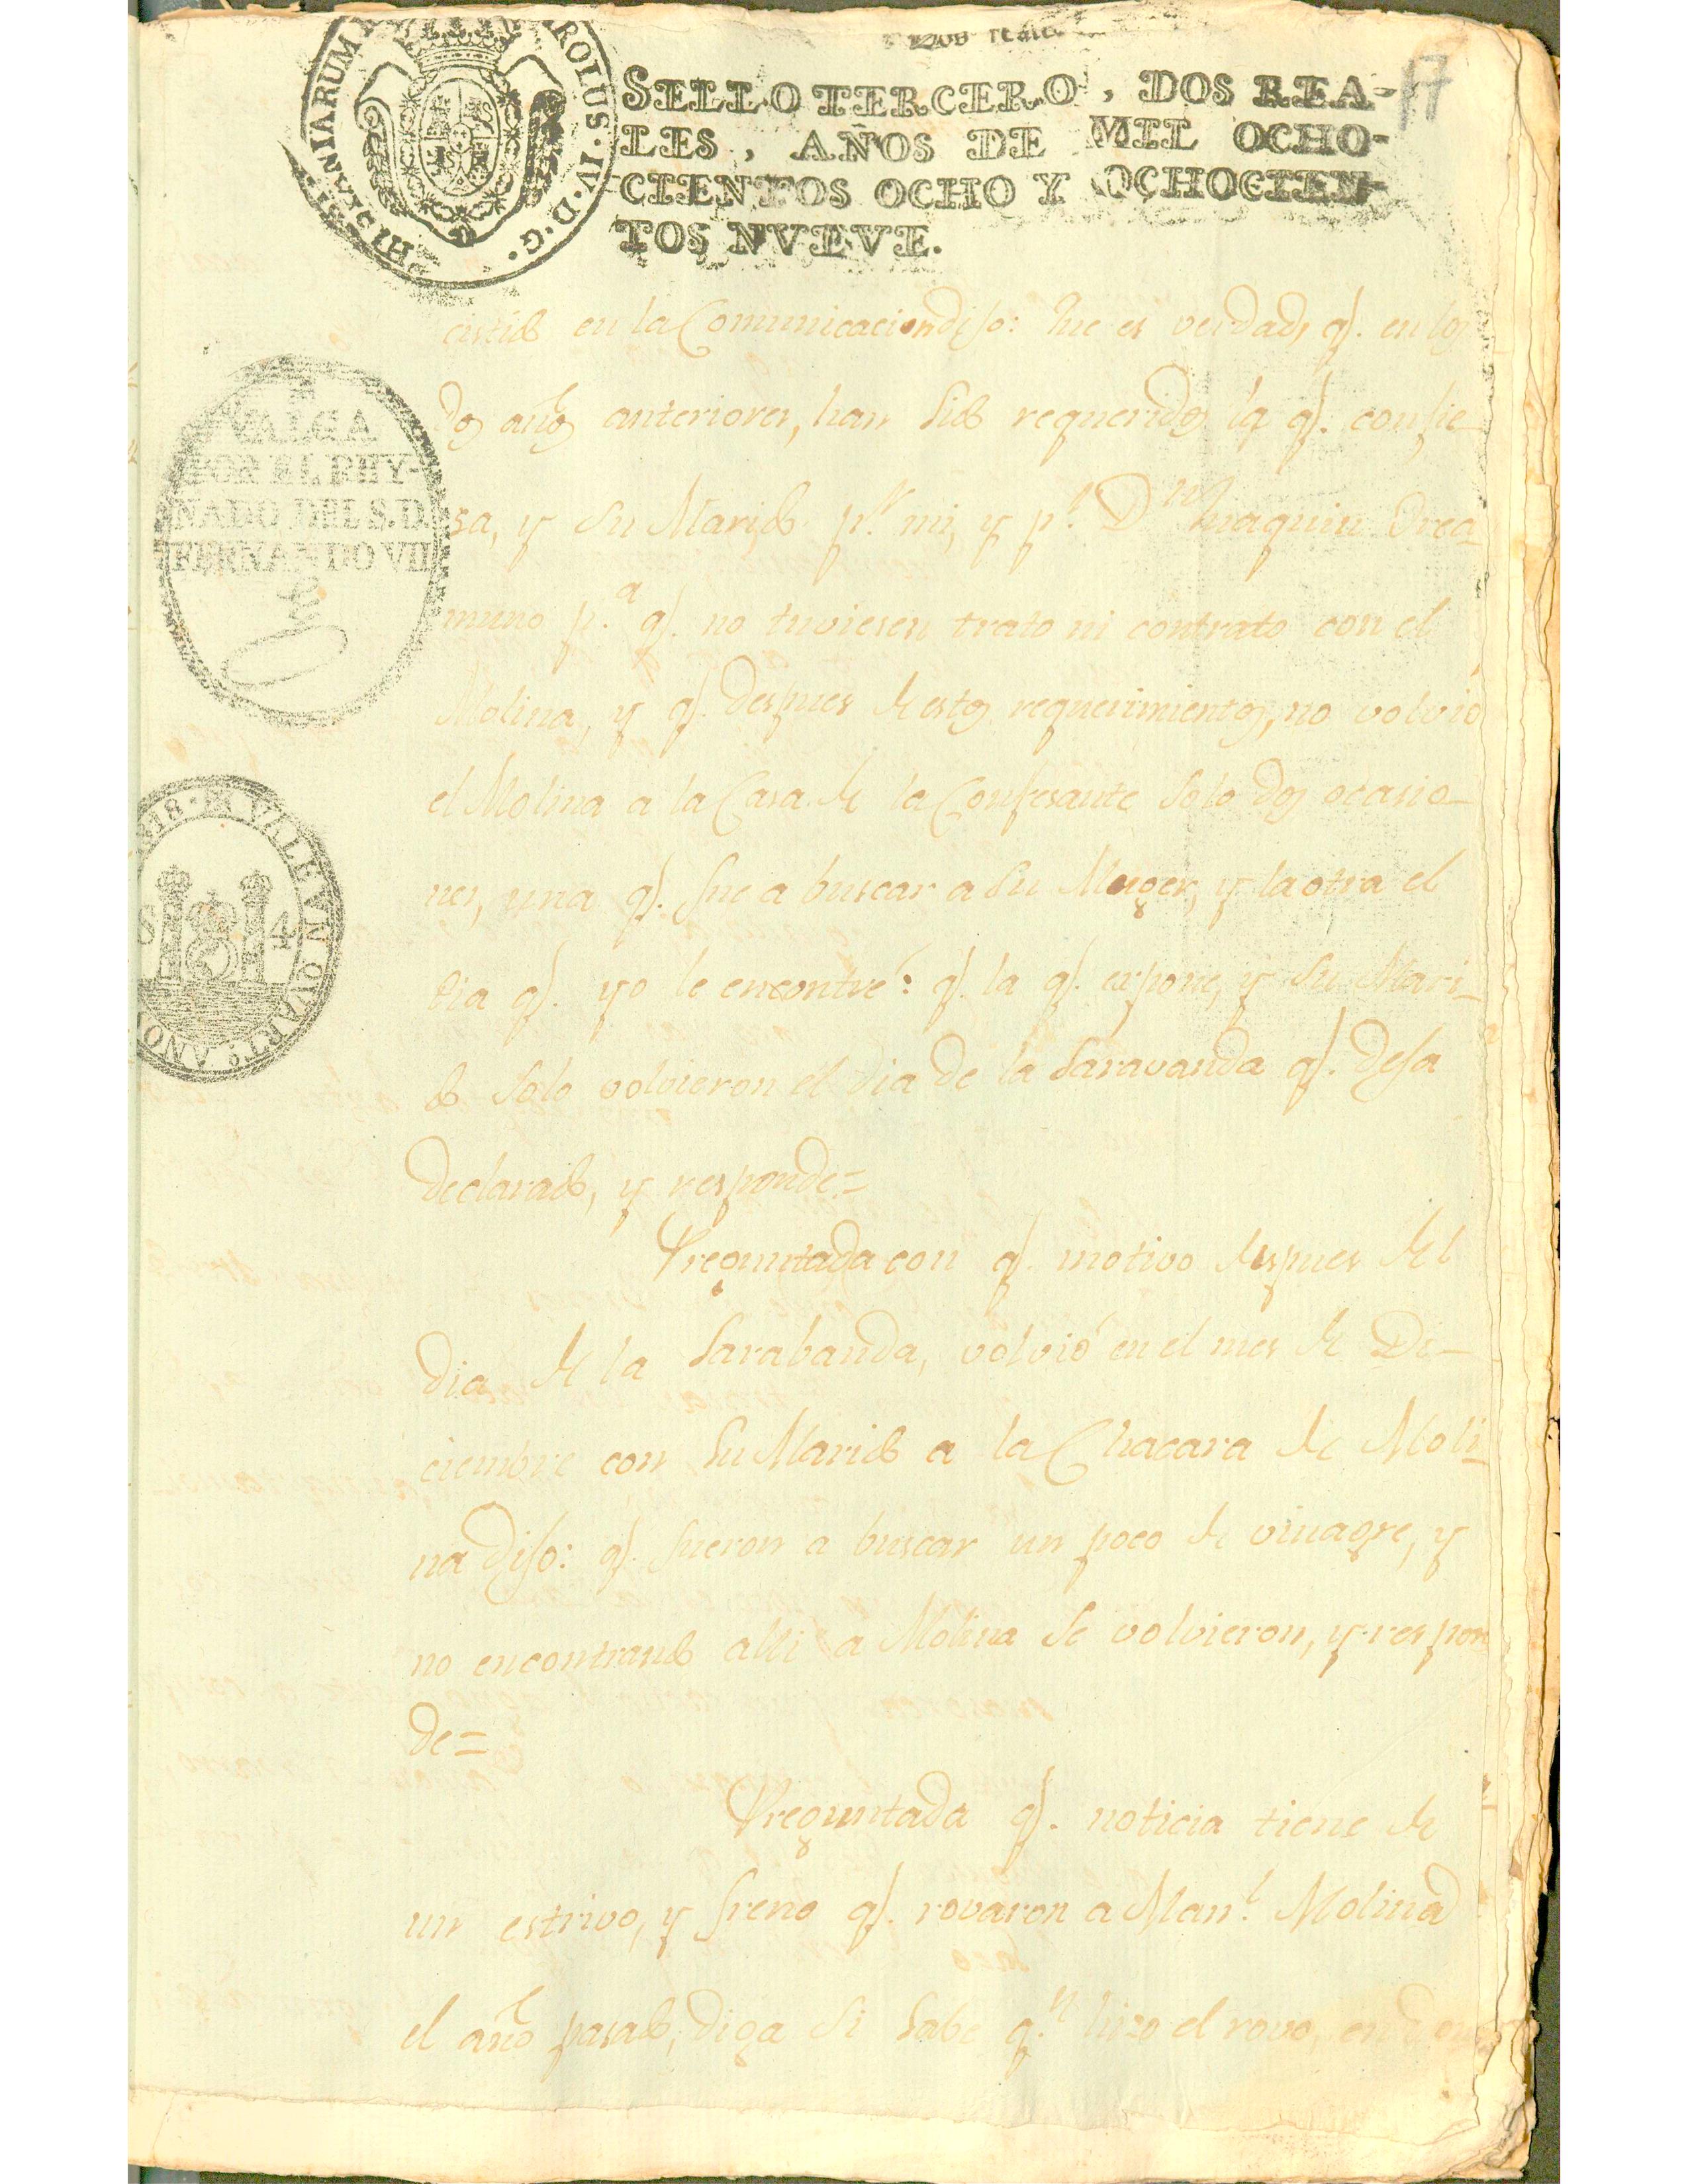 dos reales
17
HISPANIARUM CAROLUS · IV · D · G ·
SELLO TERCERO, DOS REA-
LES, AÑOS DE MIL OCHO-
CIENTOS OCHO Y OCHOCIEN-
TOS NVEVE.
VALGA
POR EL REY-
NADO DEL S. D.
FERNANDO VII
1818 · VALE VN QVART.º AÑO
S 4
cistido en la Comunicacion dijo: Que es verdad, q.e en los
dos años anteriores, han sido requeridos la q.e confie-
sa, y su Marido p.r mi, y p.r D.n Juaquin Orea-
muno p.a q.e no tuviesen trato ni contrato con el
Molina, y q.e despues de estos requerimientos, no volvió
el Molina a la Casa de la Confesante solo dos ocasio-
nes, una q.e fue a buscar a su Muger, y la otra el
dia q.e yo le encontré: q.e la q.e expone, y su Mari-
do solo volvieron el dia de la Saravanda q.e deja
declarado, y responde=
Preguntada con q.e motivo despues del
dia de la Sarabanda, volvió en el mes de Di-
ciembre con su Marido a la Chacara de Moli-
na dijo: q.e fueron a buscar un poco de vinagre, y
no encontrando alli a Molina se volvieron, y respon
de=
Preguntada q.e noticia tiene de
un estrivo, y freno q.e rovaron a Man.l Molina
el año pasado, diga si sabe q.n hizo el rovo,